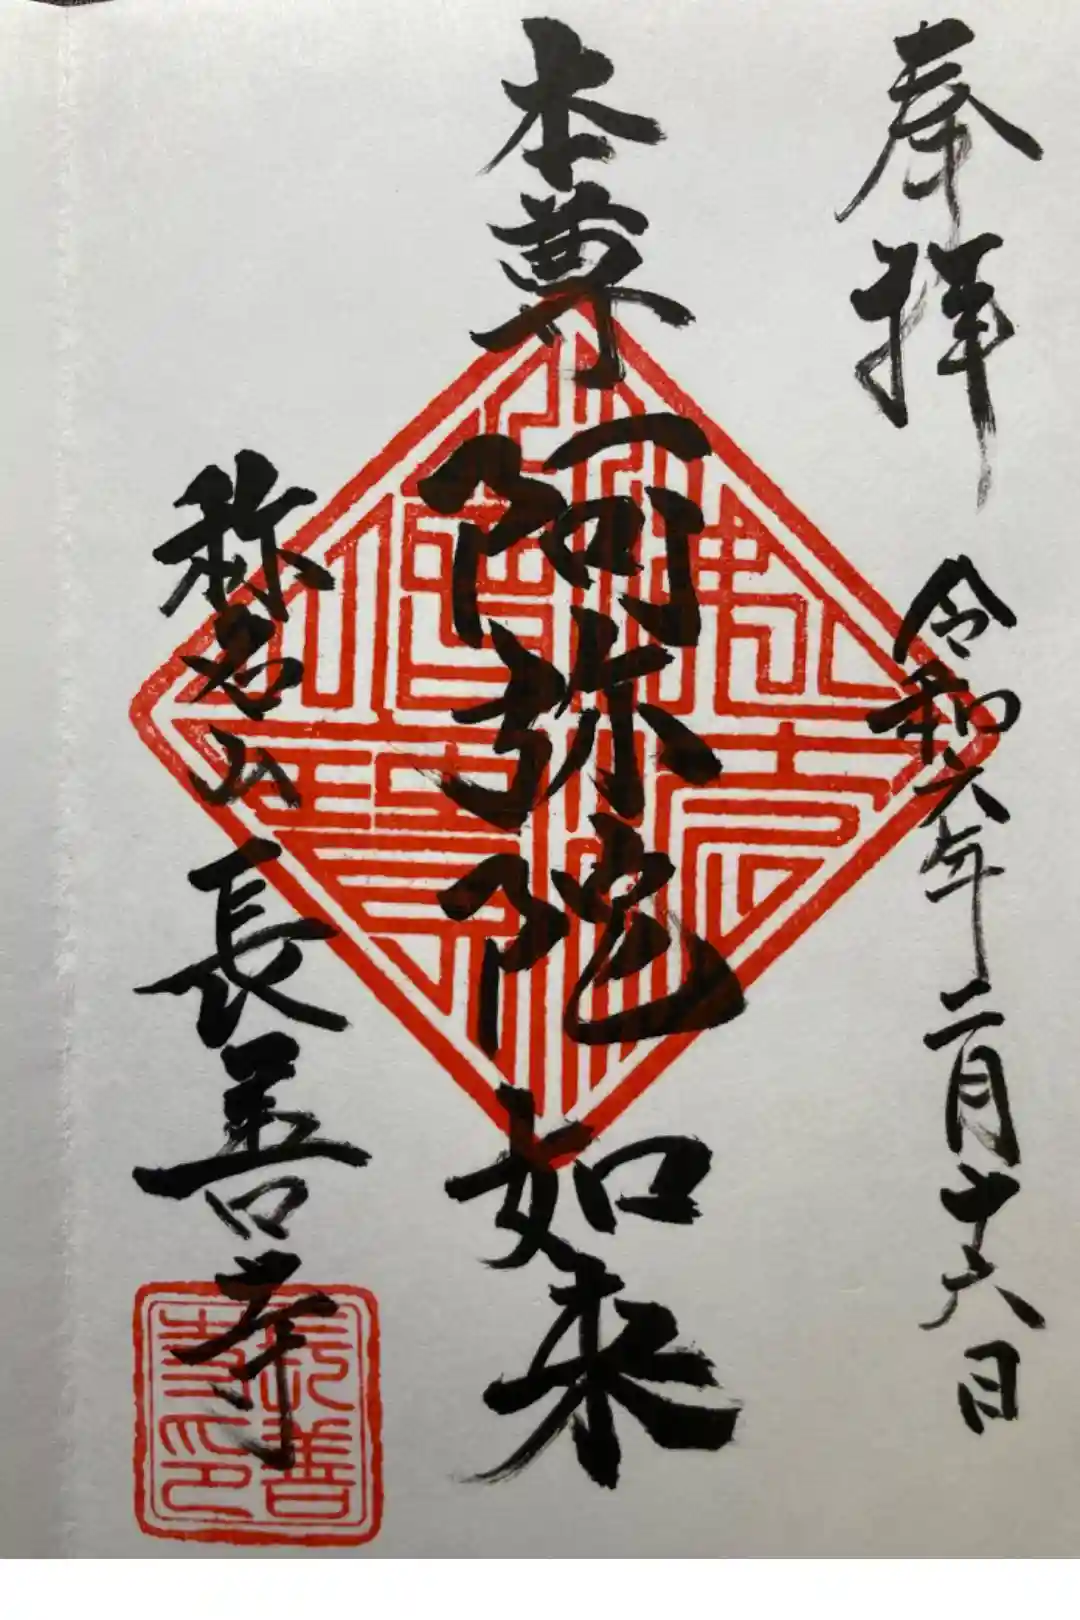 奉拝
令和六年二月十六日
本尊
阿弥陀如来
称名山
長善寺
長善寺印